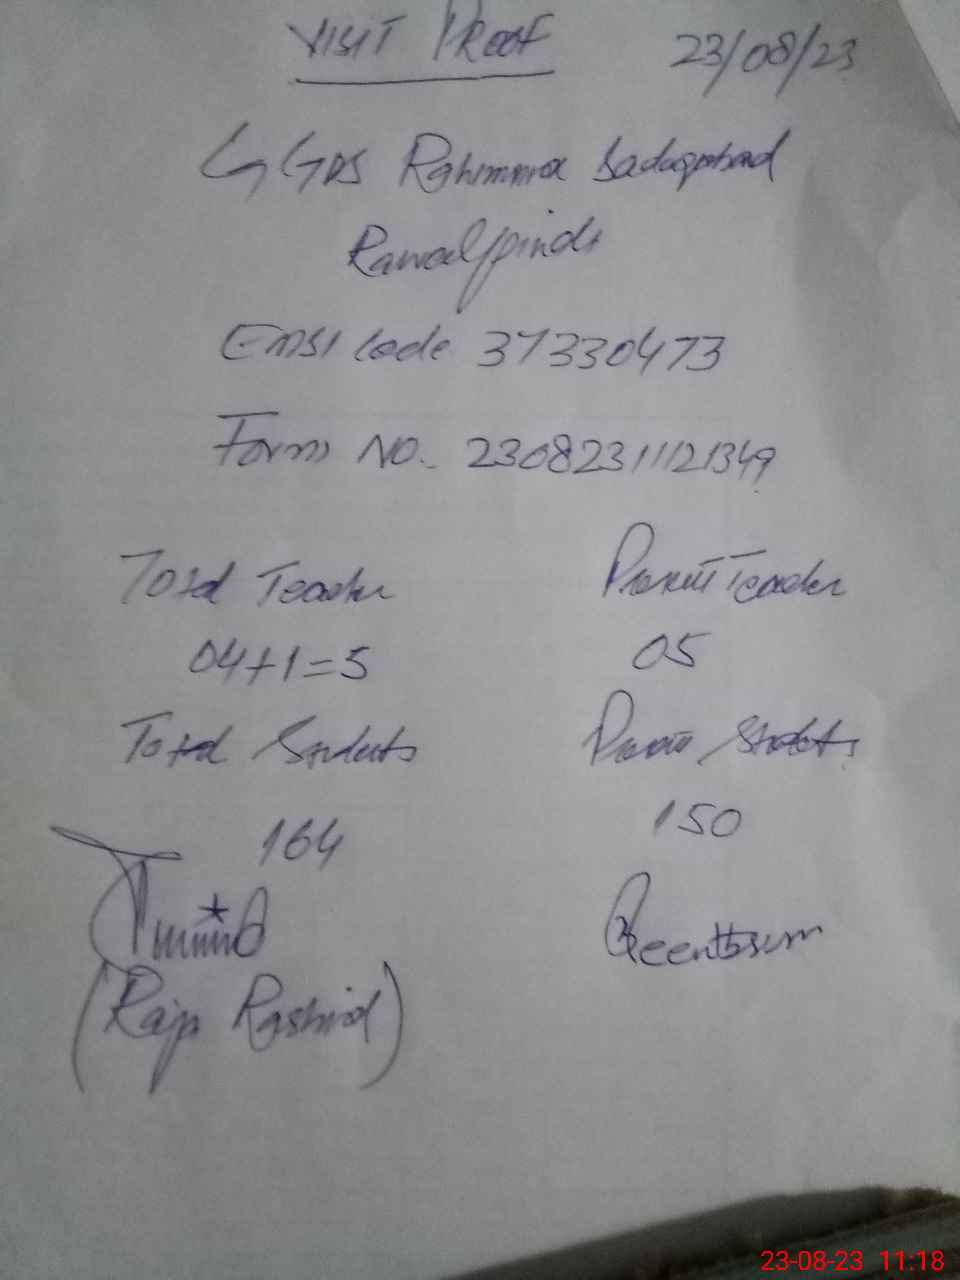 VISIT PROOF 23/08/23
Sadaqabad
Rawalpindi
EMSI code 37330473
Form NO. 23082311121349
Total Teacher Present Teacher
04+1=5 05
Total Students Present Students
164 150
(Raja Rashid)
23-08-23 11:18